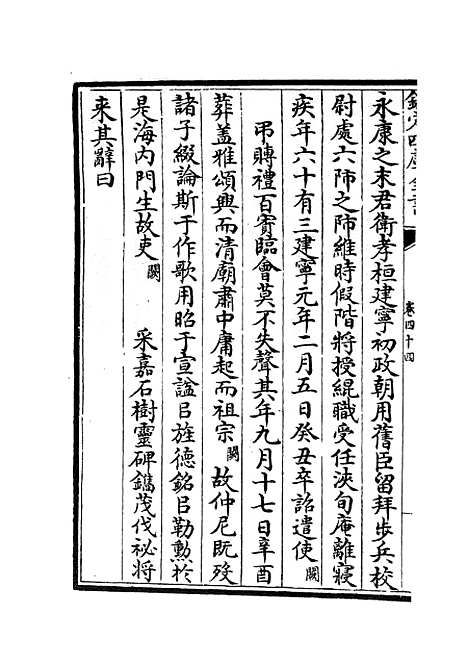 欽定四庫全書
卷四十四
永康之末君衛孝桓建寧初政朝用舊臣留拜步兵校
尉處六師之師維時假階將授緄職受任浹旬庵離寢
疾年六十有三建寧元年二月五日癸丑卒詔遣使闕
弔賻禮百賓臨會莫不失聲其年九月十七日辛酉
葬蓋雅頌興而清廟肅中庸起而祖宗闕故仲尼既歿
諸子綴論斯于作歌用昭于宣謚㠯旌德銘㠯勒勲於
是海内門生故吏闕采嘉石樹靈碑鐫茂伐祕將
来其辭曰